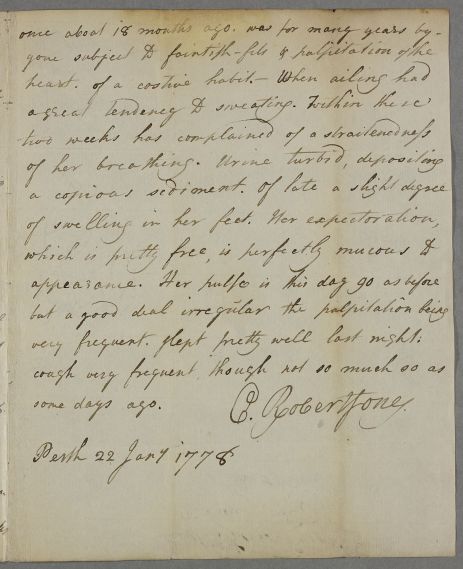 once about 18 months ago. was for many years by-
gone subject to faintish-fits & palpitation of the
heart. of a costive habit.- When ailing had
a great tendency to sweating. Within these
two weeks has complained of a straitenedness
of her breathing. Urine turbid, depositing
a copious sediment. Of late a slight degree
of swelling in her feet. Her expectoration,
which is pretty free, is perfectly mucous to
appearance. Her pulse is this day 90 as before
but a good deal irregular the palpitation being
very frequent. slept pretty well last night.
cough very frequent though not so much so as
some days ago.
Robertsone
Perth 22 Jany 1778